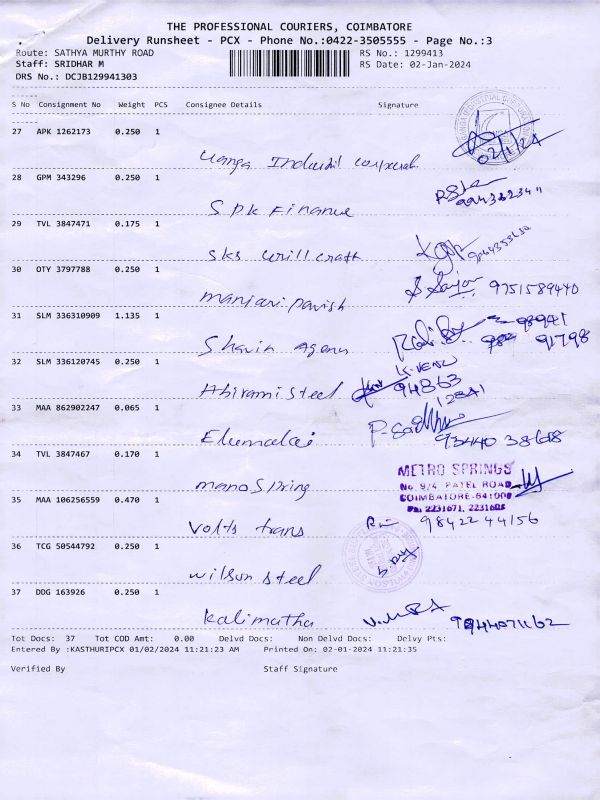 THE PROFESSIONAL COURIERS, COIMBATORE
Delivery Runsheet - PCX - Phone No.:0422-3505555 - Page No.:3
Route: SATHYA MURTHY ROAD RS No.: 1299413
Staff: SRIDHAR M RS Date: 02-Jan-2024
DRS No.: DCJB129941303
S No Consignment No Weight PCS Consignee Details Signature
27 APK 1262173 0.250 1
02/1/24
Industrial
28 GPM 343296 0.250 1
SPK Finance
29 TVL 3847471 0.175 1
SKS
30 OTY 3797788 0.250 1
9751589440
31 SLM 336310909 1.135 1
91798
32 SLM 336120745 0.250 1
K-VENU
94863
12341
Abirami Steel
33 MAA 862902247 0.065 1
Elumalai
34 TVL 3847467 0.170 1
METRO SPRINGS
No. 9/4 PATEL ROAD
mano Spring
35 MAA 106256559 0.470 1
Volts trans 9842244156
36 TCG 50544792 0.250 1
wilson steel
37 DDG 163926 0.250 1
Kalimatha
Tot Docs: 37 Tot COD Amt: 0.00 Delvd Docs: Non Delvd Docs: Delvy Pts:
Entered By :KASTHURIPCX 01/02/2024 11:21:23 AM Printed On: 02-01-2024 11:21:35
Verified By Staff Signature